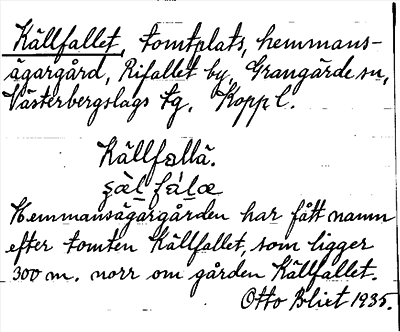 Källfallet, tomtplats, hemmans-
ägargård, Rifallet by, Grangärde sn,
Västerbergslags tg. Kopp. l.
Källfallä.
Hemmansägargården har fått namn
efter tomten Källfallet, som ligger
300 m. norr om gården Källfallet.
Otto Blixt 1935.